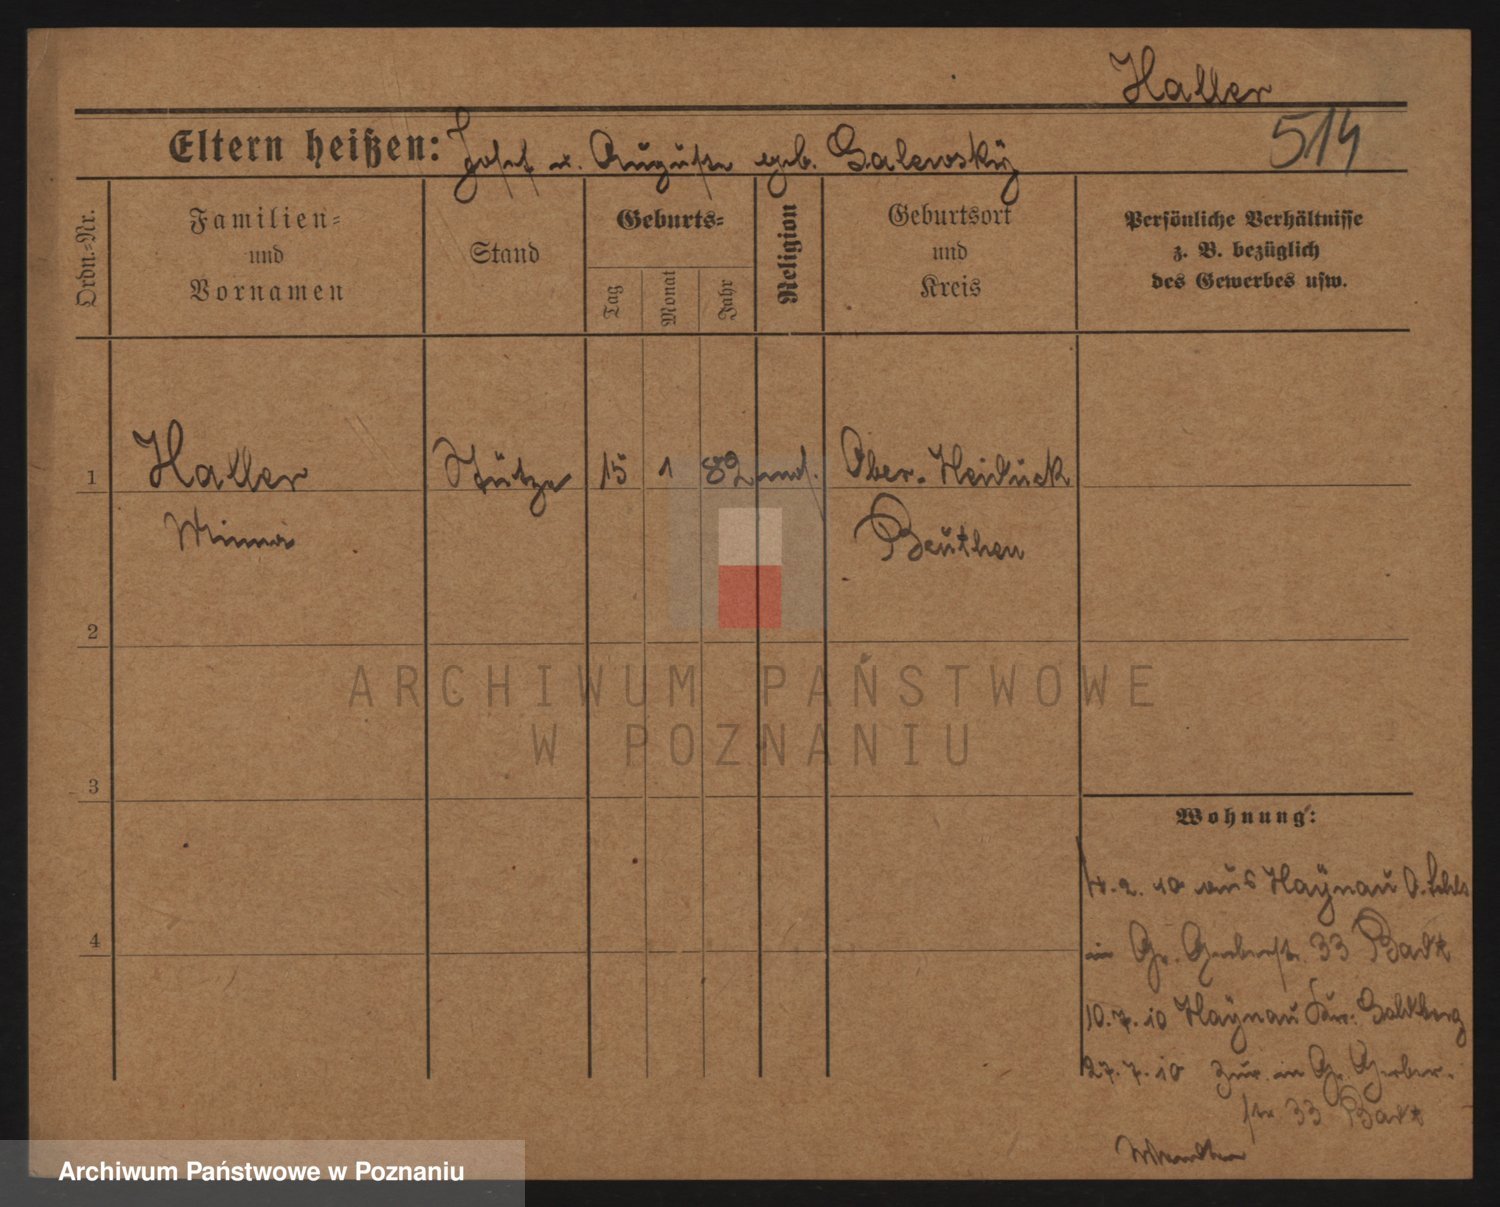 Haller
514
Eltern heißen: Josef u. Auguste geb. Galewsky
Ordn.=Nr.
Familien=
und
Vornamen
Stand
Geburts=
Tag
Monat
Jahr
Religion
Geburtsort
und
Kreis
Persönliche Verhältnisse
z. B. bezüglich
des Gewerbes usw.
1 Haller Stütze 15 1 82 mos. Ober-Heiduck
Minna Beuthen
2
3
4
Wohnung:
2. 10 aus Haynau
in Gr. Gerberstr. 33
10.7.10 Haynau Goldberg
27.7.10 zur. in Gr. Gerber-
str 33
ARCHIWUM PAŃSTWOWE
W POZNANIU
Archiwum Państwowe w Poznaniu